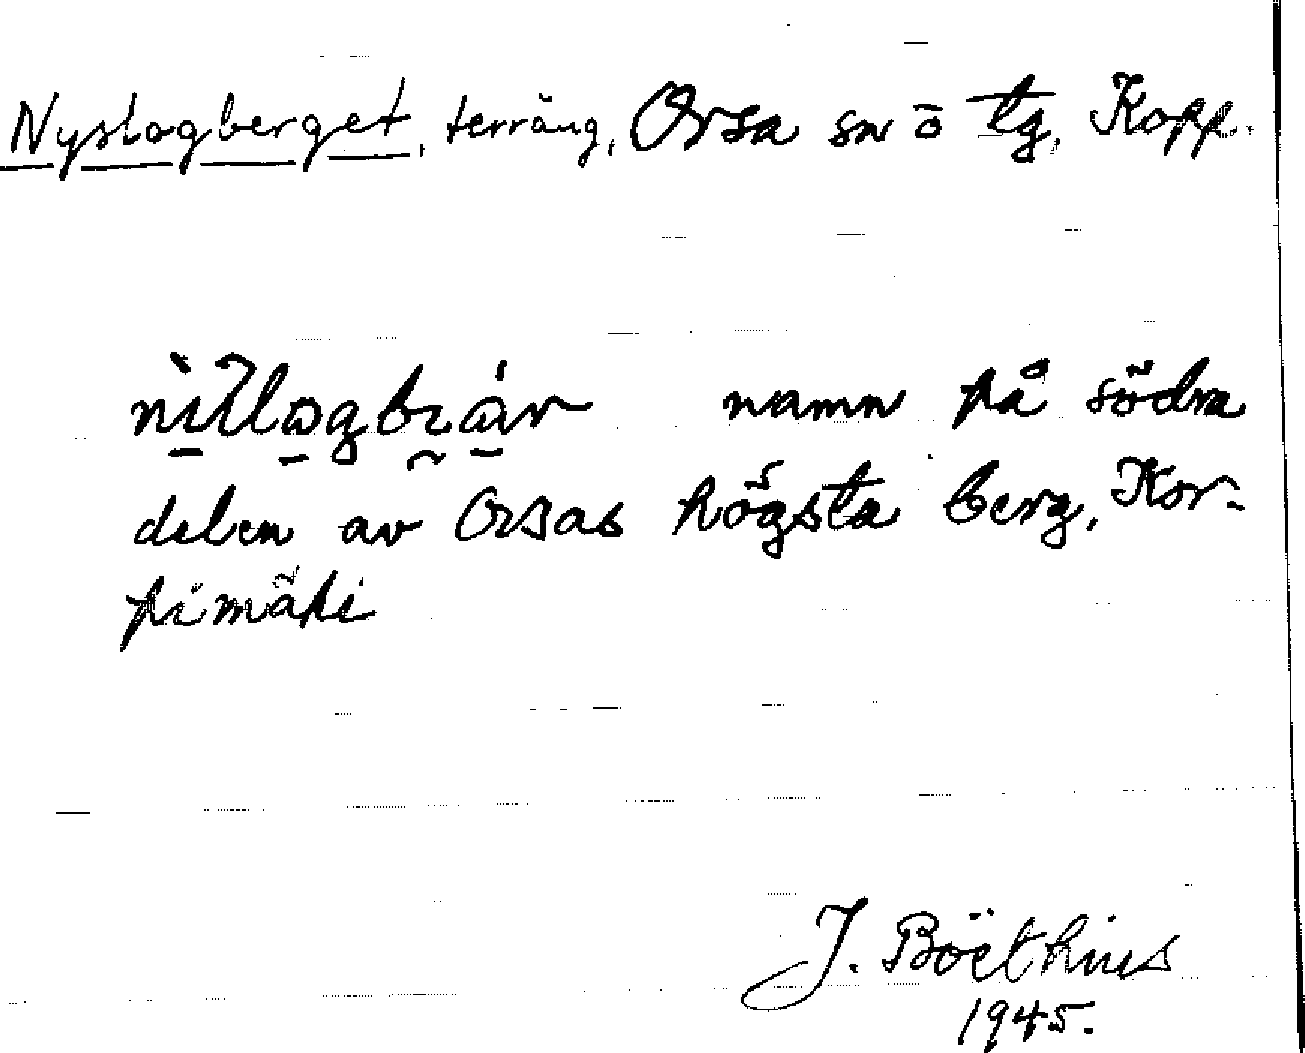 Nyslogberget, terräng, Orsa sn o tg, Kopp.
namn på södra
delen av Orsas högsta berg, Kor-
pimäki
J. Böethius
1945.